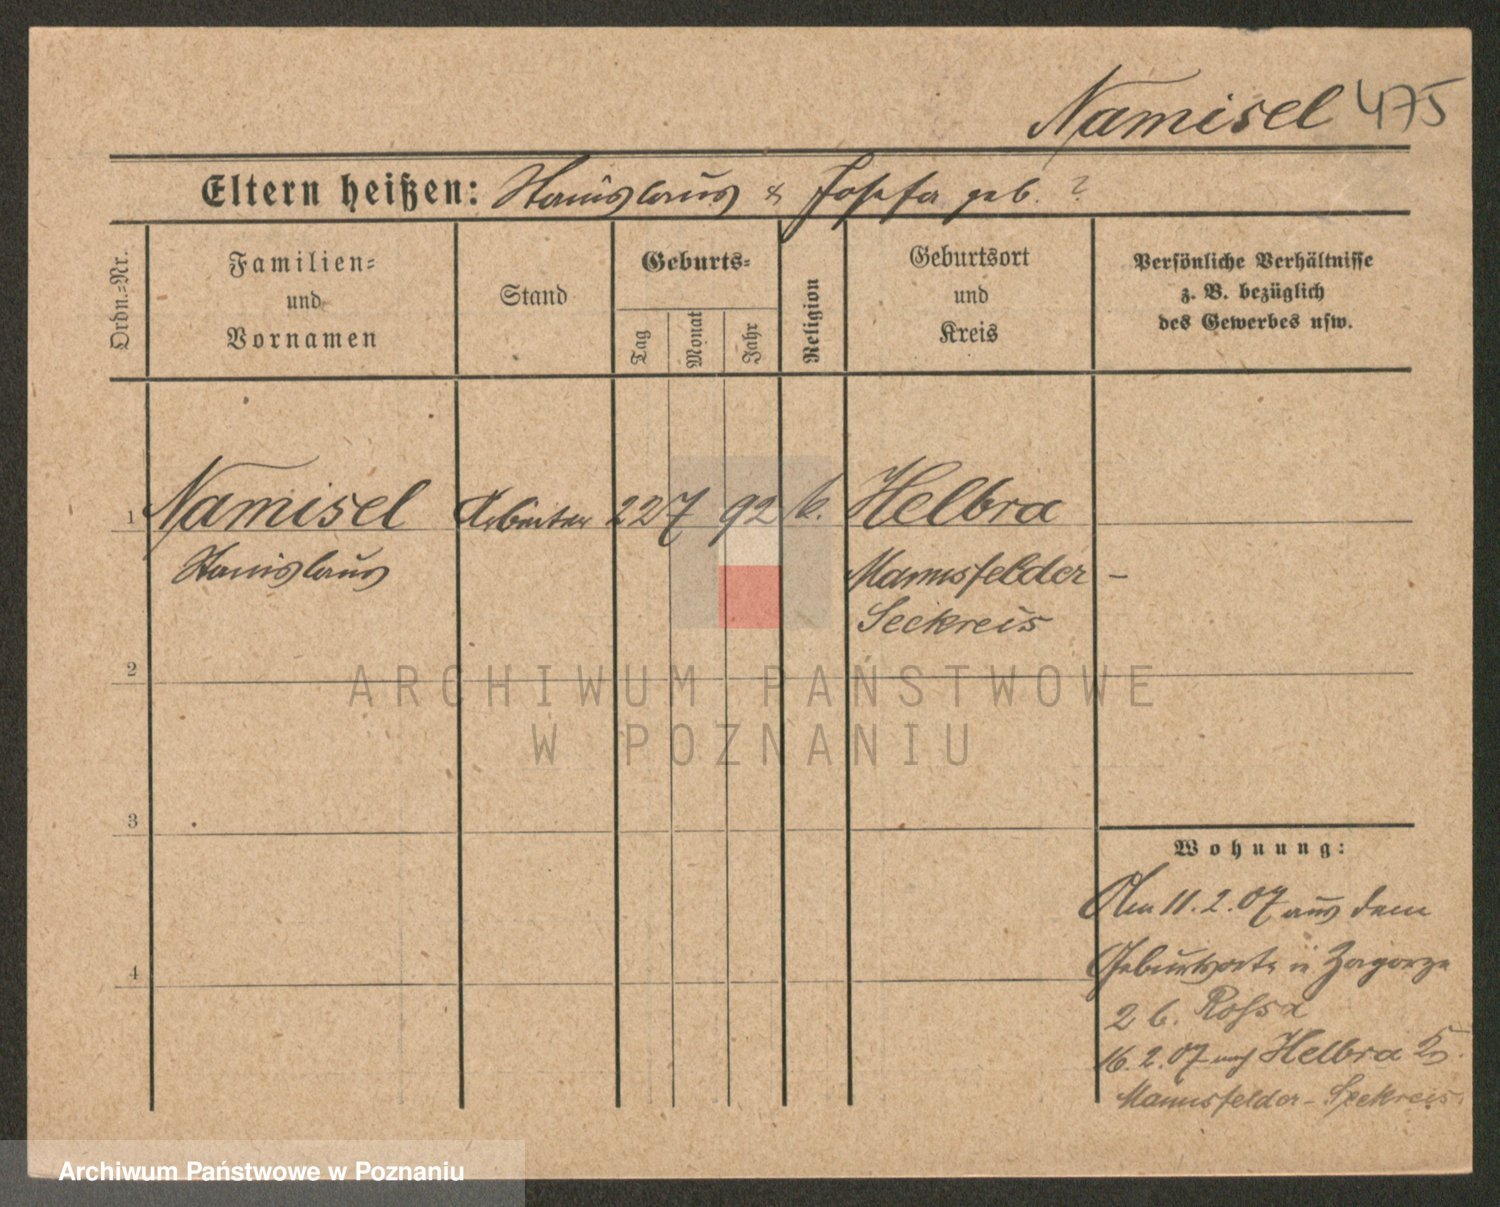 Namisel 475
Eltern heißen: Stanislaus & Josefa geb. ?
Ordn.-Nr.
Familien-
und
Vornamen
Stand
Geburts-
Tag
Monat
Jahr
Religion
Geburtsort
und
Kreis
Persönliche Verhältnisse
z. B. bezüglich
des Gewerbes usw.
1 Namisel Arbeiter 22 7 92 k. Helbra
Stanislaus Mannsfelder -
Seekreis
2
ARCHIWUM PAŃSTWOWE
W POZNANIU
3
Wohnung:
Am 11.2.07 aus dem
Geburtsorte n Zagorze
2 b. Rossa
16.2.07 nach Helbra
4
Mannsfelder-Seekreis
Archiwum Państwowe w Poznaniu